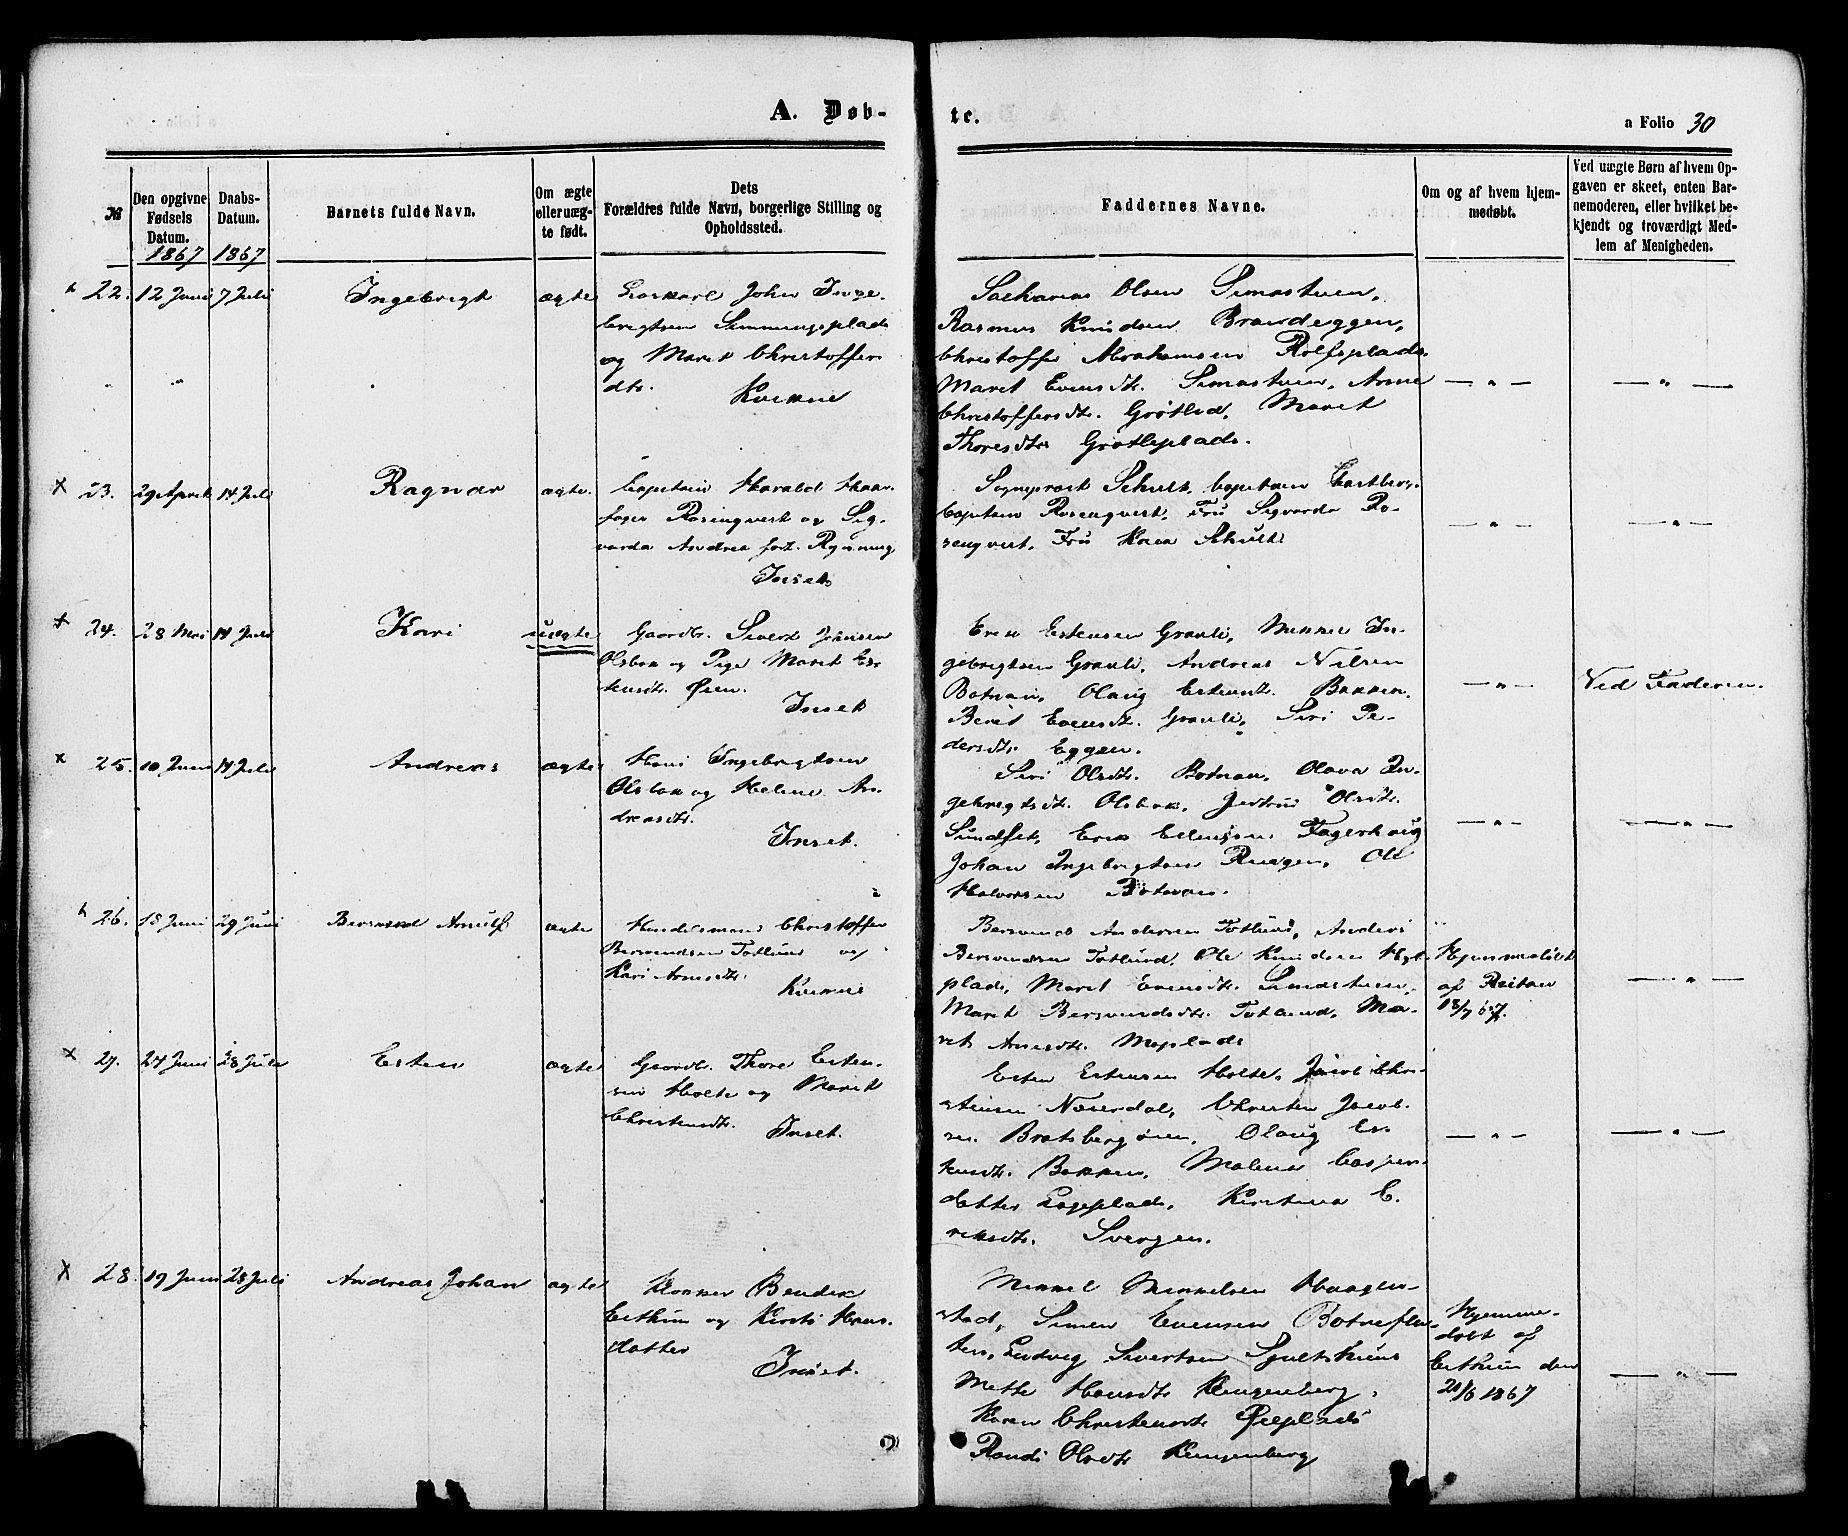 A. Døb-
te.
a Folio 30
№
Den opgivne Fødsels Datum.
1867
Daabs-Datum.
1867
Barnets fulde Navn.
Om ægte eller uæg-te født.
Dets
Forældres fulde Navn, borgerlige Stilling og Opholdssted.
Faddernes Navne.
Om og af hvem hjem-medøbt.
Ved uægte Børn af hvem Op-gaven er skeet, enten Bar-nemoderen, eller hvilket be-kjendt og troværdigt Med-lem af Menigheden.
22. 12 Juni 7 Juli Ingebrigt ægte
John Inge-
brigtsen
og Maret Christoffers-
dtr. Kvikne
Olsen Simastuen,
Rasmus Knudsen Brandeggen,
Christoffer Abrahamsen Rolfsplads.
Maret Evensdtr. Simastuen, Anne
Christoffersdtr. Grøtlid, Maret
Thoresdtr Grøtliplads.
— " —
— " —
23. 29 April 14 Juli Ragnar ægte.
Capitain Harald Haar-
fager Rosenqvist og Sig-
varda Andrea født Rynning
Inset.
Sogneprest Schult, Capitain
Capitain Rosenqvist, Fru Sigvarda Ro-
senqvist, Fru Kaia Schult
— " —
— " —
24. 28 Mai 14 Juli Kari uægte
Gaardbr. Sivert Johnsen
Olsbak og Pige Maret Es-
tensdtr. Øien.
Inset
Erik Estensen Granli, Mikkel In-
gebrigtsen Granli, Andreas Nilsen
Botnan, Olaug Estensdtr. Bakken.
Berit Evensdtr. Granli, Siri Pe-
dersdtr. Eggen.
— " —
Ved Faderen.
25. 10 Juni 14 Juli Andreas ægte
Hans Ingebrigtsen
Olsbak og Helene An-
dreasdtr.
Inset.
Siri Olsdtr. Botnan, Olava In-
gebrigtsdtr. Olsbak, Olsdtr.
Sundset, Erik Estensen Fagerhaug
Johan Ingebrigtsen Ole
Halvorsen Botnan.
— " —
— " —
26. 18 Juni 29 Juni Bersvend Arnulf ægte
Handelsmand Christoffer
Bersvendsen Totlund og
Kari Arnesdtr.
Kvikne
Bersvend Andersen Totlund, Anders
Bersvendsen Totlund, Ole Knudsen
plads, Maret Evensdtr.
Maret Bersvendsdtr. Totlund, Ma-
ret Arnesdtr. Moplads
Hjemmedøbt
af Reitan
18/7 67.
— " —
27. 24 Juni 28 Juli Esten ægte
Gaardbr. Thore Esten-
sen Holte og Marit
Christensdtr.
Inset.
Esten Estensen Holte, Jacob Chri-
stensen Næverdal, Christen Jacob-
sen Bratsbergøien, Olaug Es-
tensdtr. Bakken, Malena Casper-
datter Kirstina E-
riksdtr. Svergen.
— " —
— " —
28. 19 Juni 28 Juli Andreas Johan ægte
Klokker Bendik
Eithun og Kirsti Hans-
datter
Inset.
Mikkel Mikkelsen Haagen-
stad, Simen Evensen Botnefla-
ten, Ludvig Sivertsen
Mette Hansdtr Klingenberg,
Karen Christensdtr Øieplads
Randi Olsdtr Klingenberg
Hjemme-
døbt af
Eithun den
20/6 1867
— " —